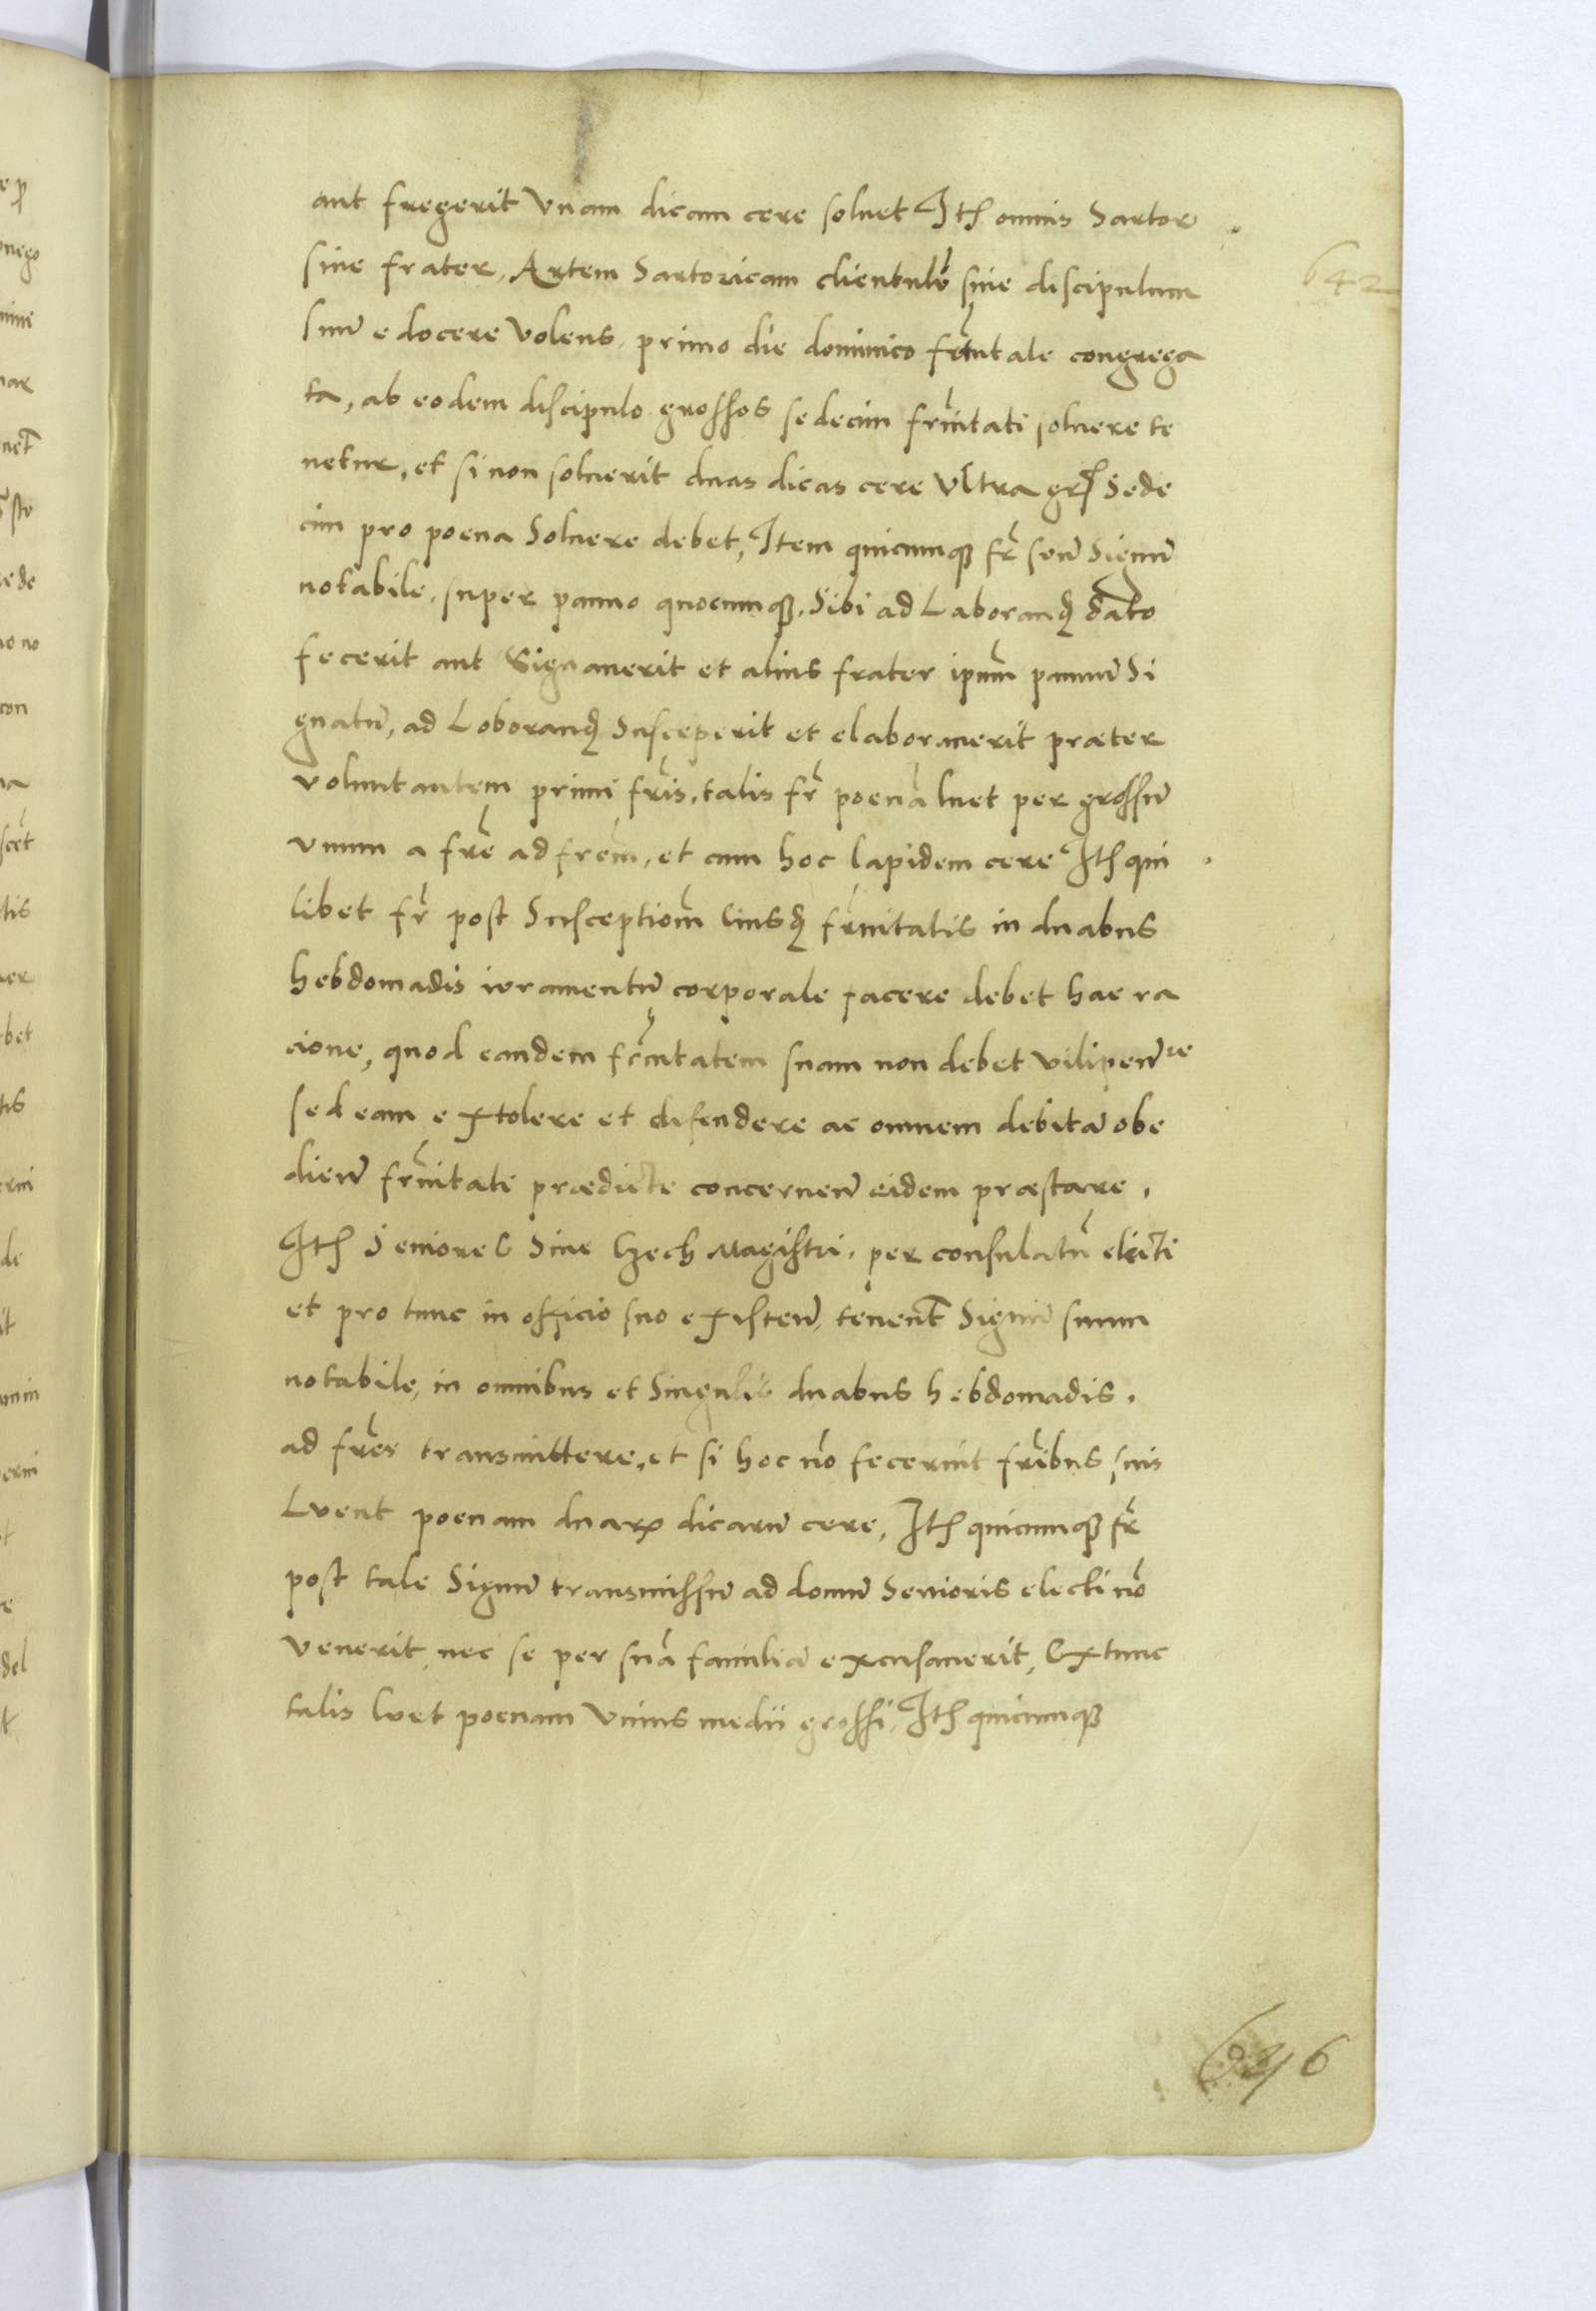 aut fregerit Vnam dicam cere soluet Itꝭ omnis Sartor
642
siue frater, Artem Sartoricam clientulũ siue discipulum
suũ edocere Volens, primo die dominico fr̃nitate congrega
ta, ab eodem discipulo grossos sedecim fr̃nitati soluere te
netur, et si non soluerit duas dicas cere Vltra grꝭ Sede
cim pro poena Soluere debet, Item quicumqꝫ fr̃ seu Signũ
notabile, super panno quocumqꝫ, Sibi ad Laborandꝭ dato
fecerit aut Signauerit et alius frater ipsum pannũ Si
gnatũ, ad Loborandꝭ Susceperit et elaborauerit præter
voluntantem primi fr̃is, talis fr̃ poenã luet per grossũ
vnum a fr̃e ad fr̃em, et cum hoc lapidem cere Itꝭ qui
libet fr̃ post Susceptiom̃ Eiusdꝭ fr̃nitatis in duabus
hebdomadis iuramentũ corporale facere debet hac ra
cione, quod eandem fr̃nitatem suam non debet vilipen̄re
sed eam extolere et difendere ac omnem debitã obe
dien̄ fr̃nitati prædicte concernen̄ eidem præstare,
Itꝭ Seniores Siue Czech Magistri, per consulatũ electi
et pro tunc in officio suo existen̄, tenent̃ Signũ suum
notabile, in omnibus et Singulis duabus hebdomadis,
ad fr̃es transmittere, et si hoc nõ fecerint fr̃ibus suis
Luent poenam duaꝝ dicarũ cere, Itꝭ quicumqꝫ fr̃
post tale Signũ transmissũ ad domũ Senioris electi nõ
venerit, nec se per suã familiã excusauerit, Extunc
talis luet poenam Vnius medii grossi, Itꝭ quicumqꝫ
646